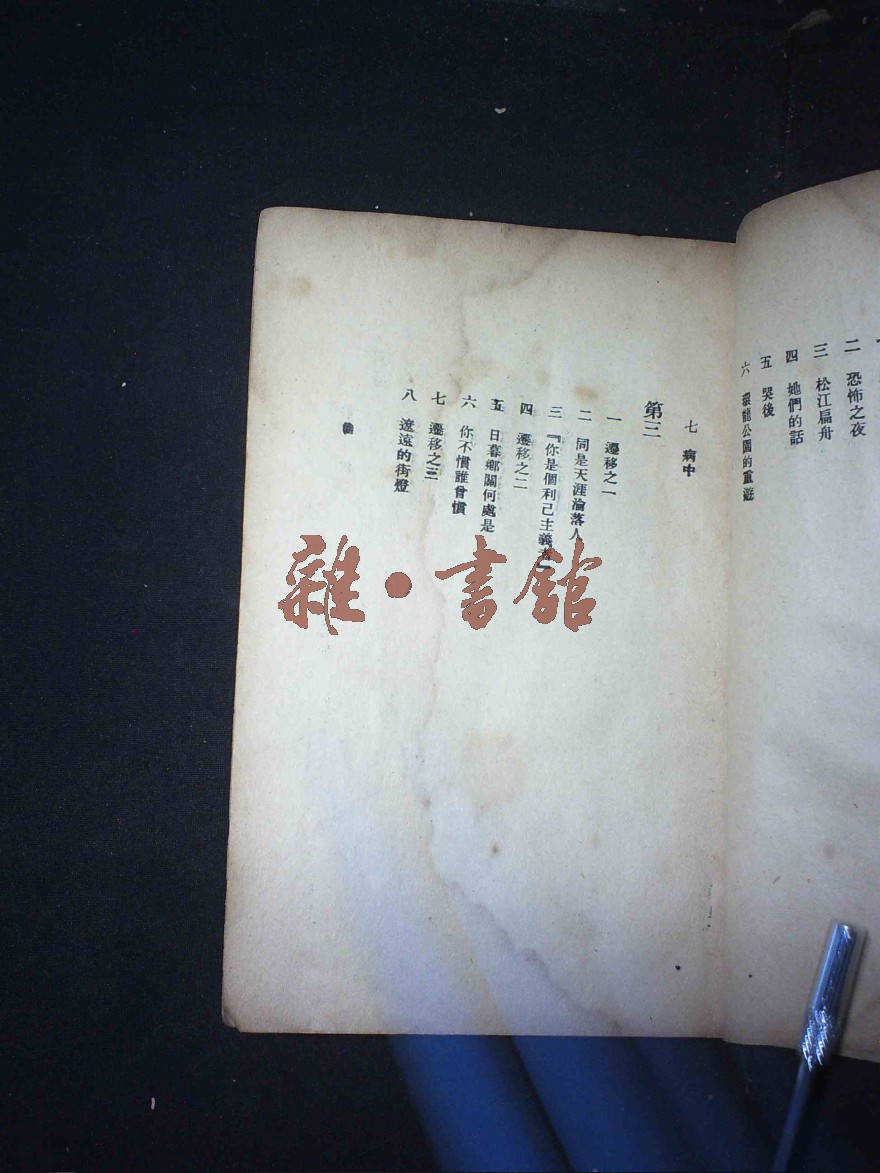 二 恐怖之夜
三 松江扁舟
四 她們的話
五 哭後
六 環龍公園的重遊
七 病中
第三
一 遷移之一
二 同是天涯淪落人
三 『你是個利己主義者』
四 遷移之二
五 日暮鄉關何處是
六 你不慣誰曾慣
七 遷移之三
八 遼遠的街燈
雜·書館